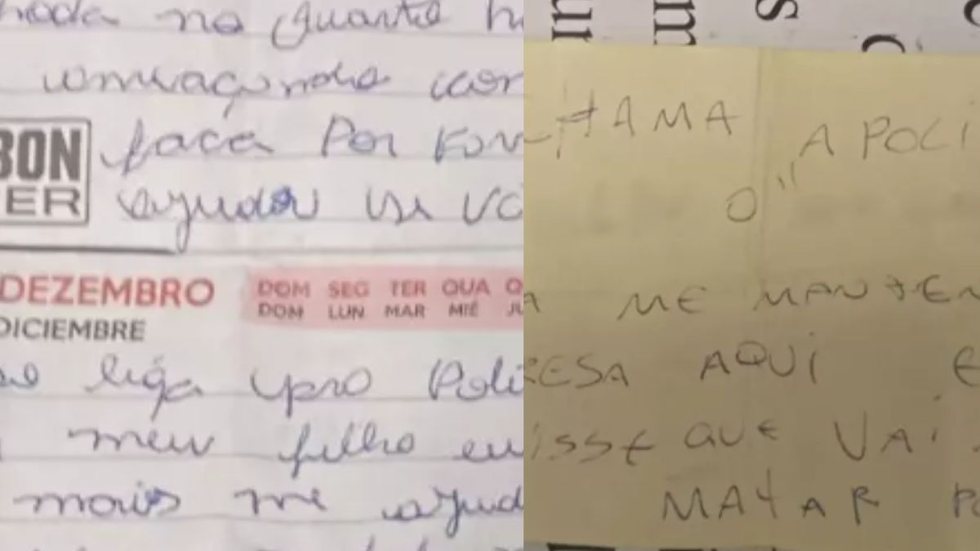 no quarto
com
faca Por
ajudar
BON
ER
DEZEMBRO
DICIEMBRE
DOM SEG TER QUA Q
DOM LUN MAR MIÉ JU
liga pro Poli
meu filho eu
mais me ajud
u m s
HAMA A POLI
O"
A ME MANTEN
RESA AQUI E
ISSE QUE VAI
MATAR PO